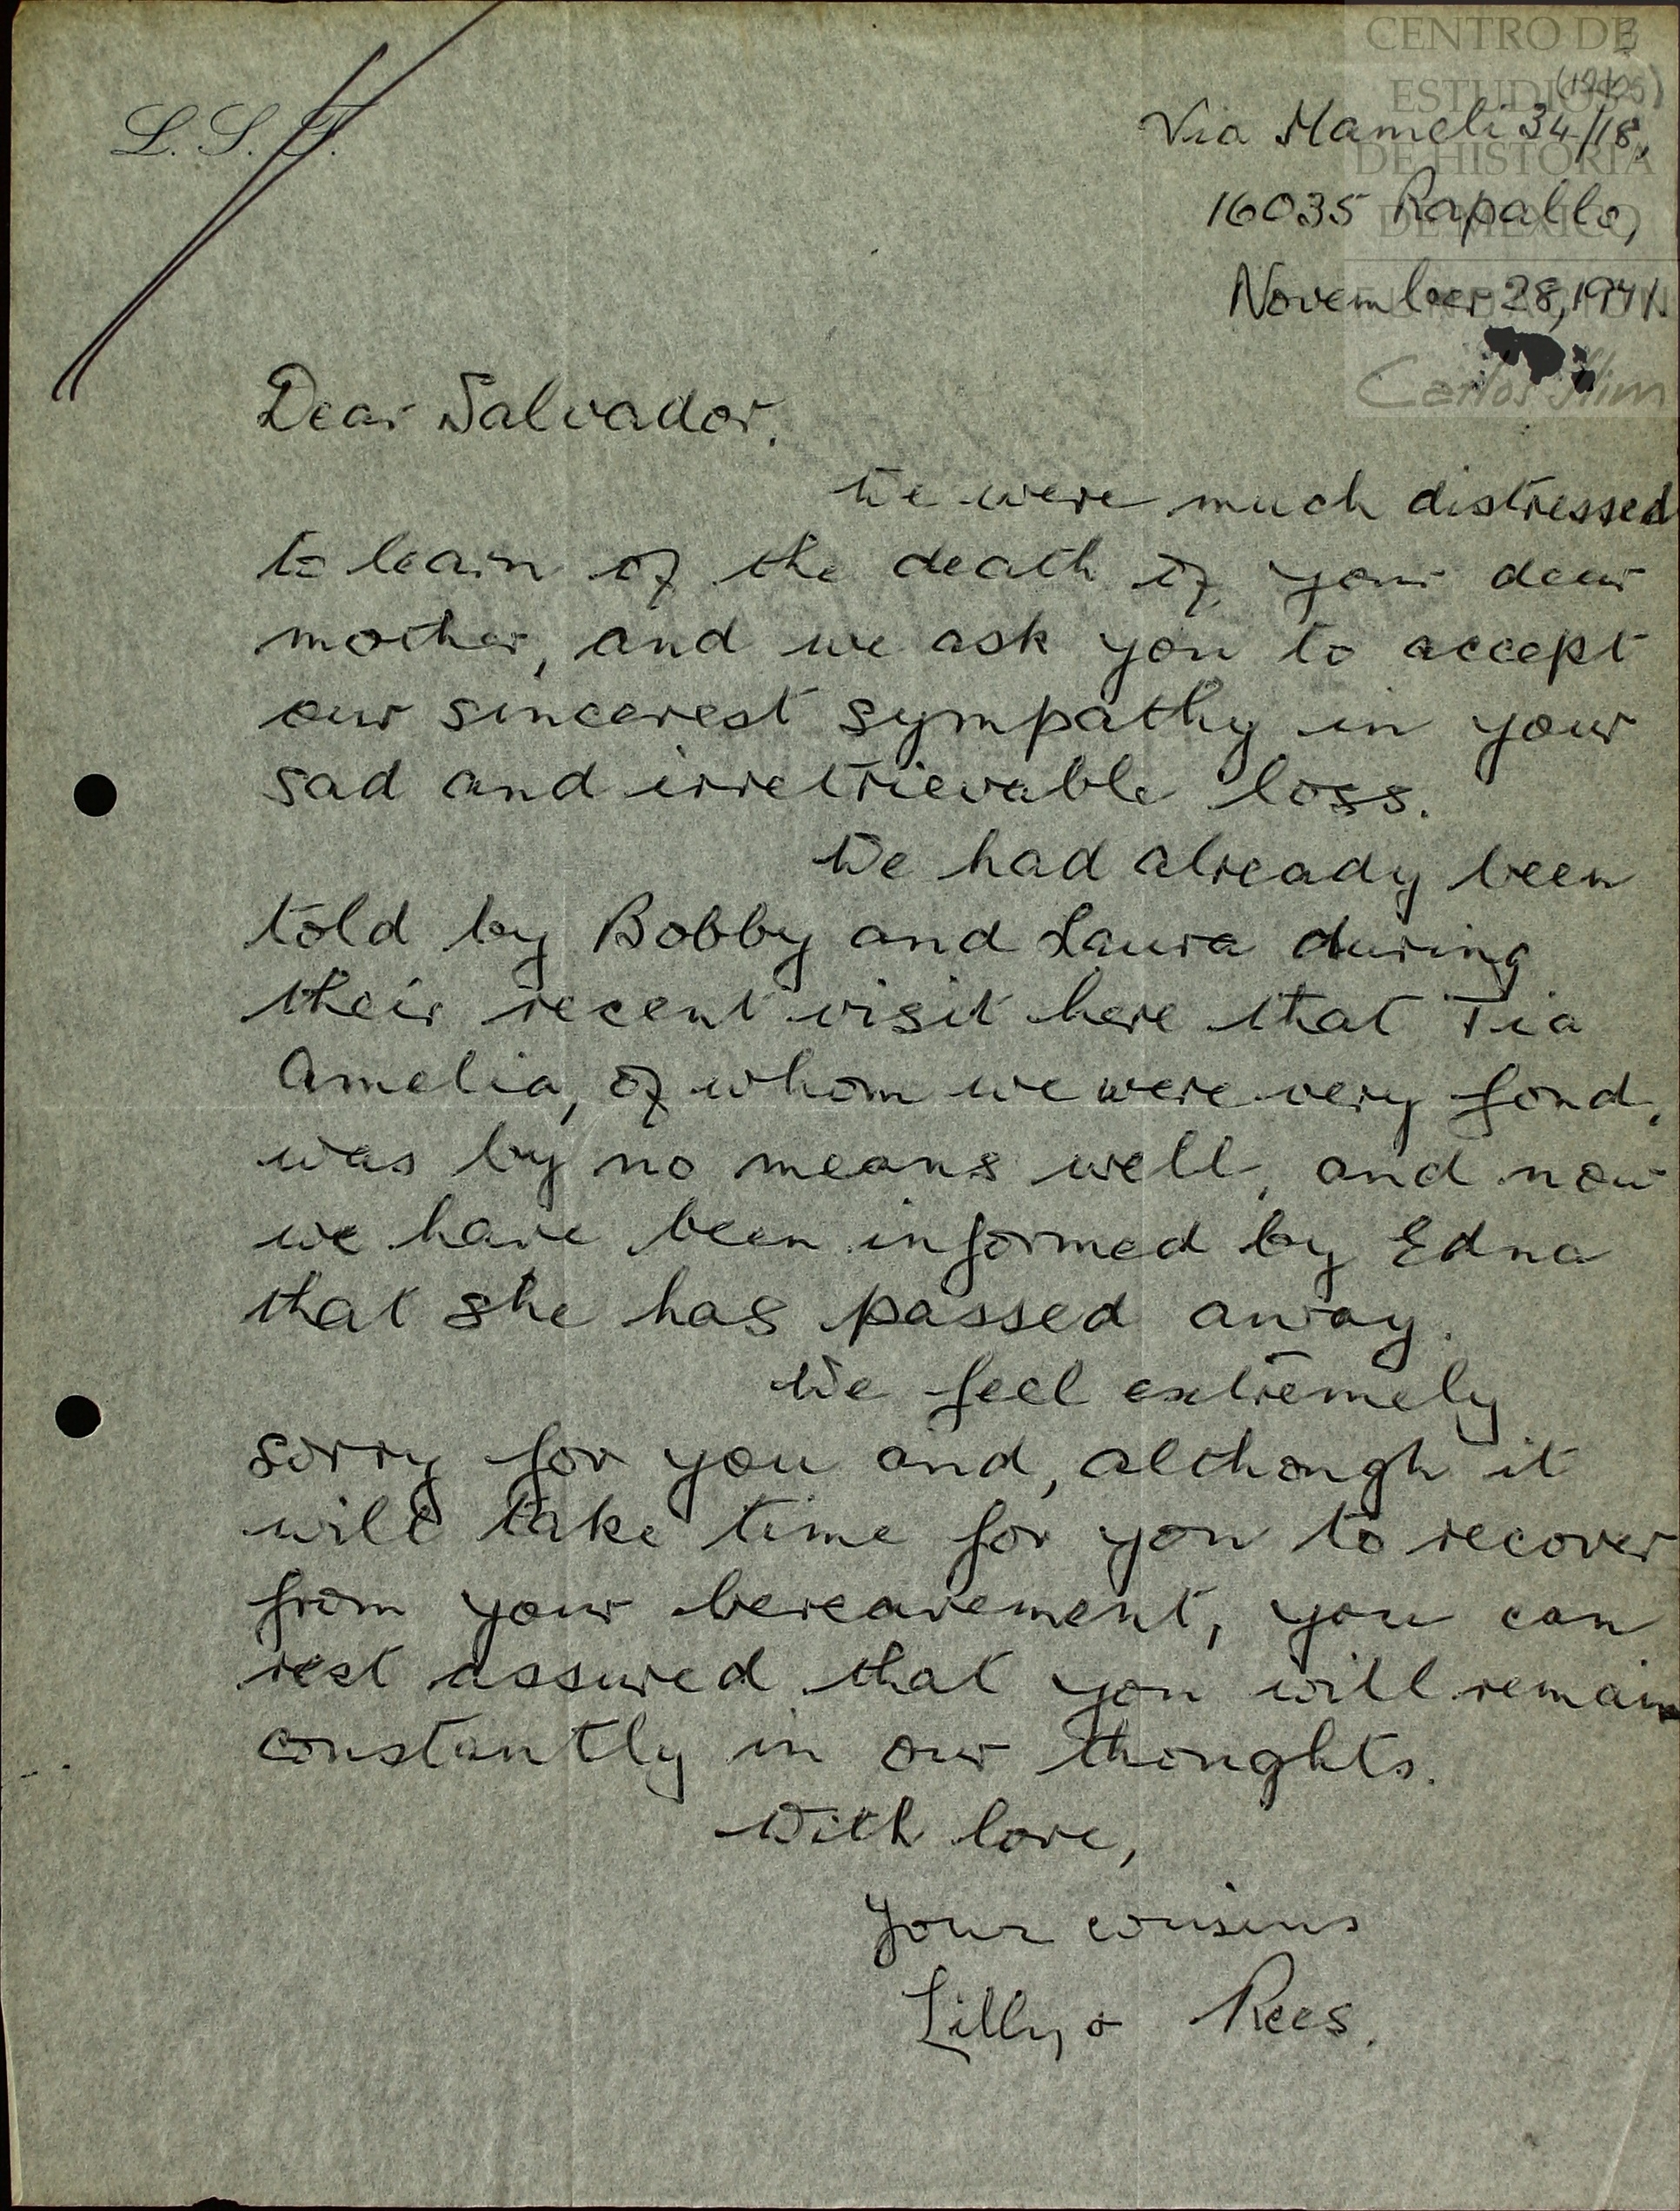 CENTRO DE
ESTUDIOS
DE HISTORIA
DE MEXICO
Carlos Slim
L. S. T.
Via Mameli 34/18,
16035 Rapallo,
November 28, 1971.
Dear Salvador.
We were much distressed
to learn of the death of your dear
mother, and we ask you to accept
our sincerest sympathy in your
sad and irretrievable loss.
We had already been
told by Bobby and Laura during
their recent visit here that Tia
Amelia, of whom we were very fond,
was by no means well, and now
we have been informed by Edna
that she has passed away.
We feel extremely
sorry for you and, although it
will take time for you to recover
from your bereavement, you can
rest assured that you will remain
constantly in our thoughts.
With love,
your cousins
Lilly & Rees.